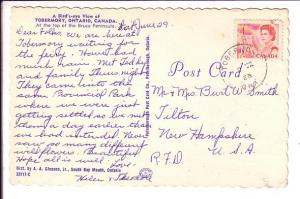 A Bird's-eye View of
TOBERMORY, ONTARIO, CANADA.
At the top of the Bruce Peninsula.
Sat June 29.
Dear Folks, We are here at
Tobermory waiting for
the ferry. Haven't had
much rain. Met Ted
and family Thurs. night.
They came into the
same Provincial Park
where we were just
getting settled so we met
them a day earlier than
we had intended. Never
saw so many different
wildflowers. Beautiful
Hope all is well. Love
Dist. by A. A. Gleason, Jr., South Bay Mouth, Ontario
Helen
Post Card
Mr & Mrs Burt W. Smith
Tilton
New Hampshire
R.F.D. U.S.A.
CANADA